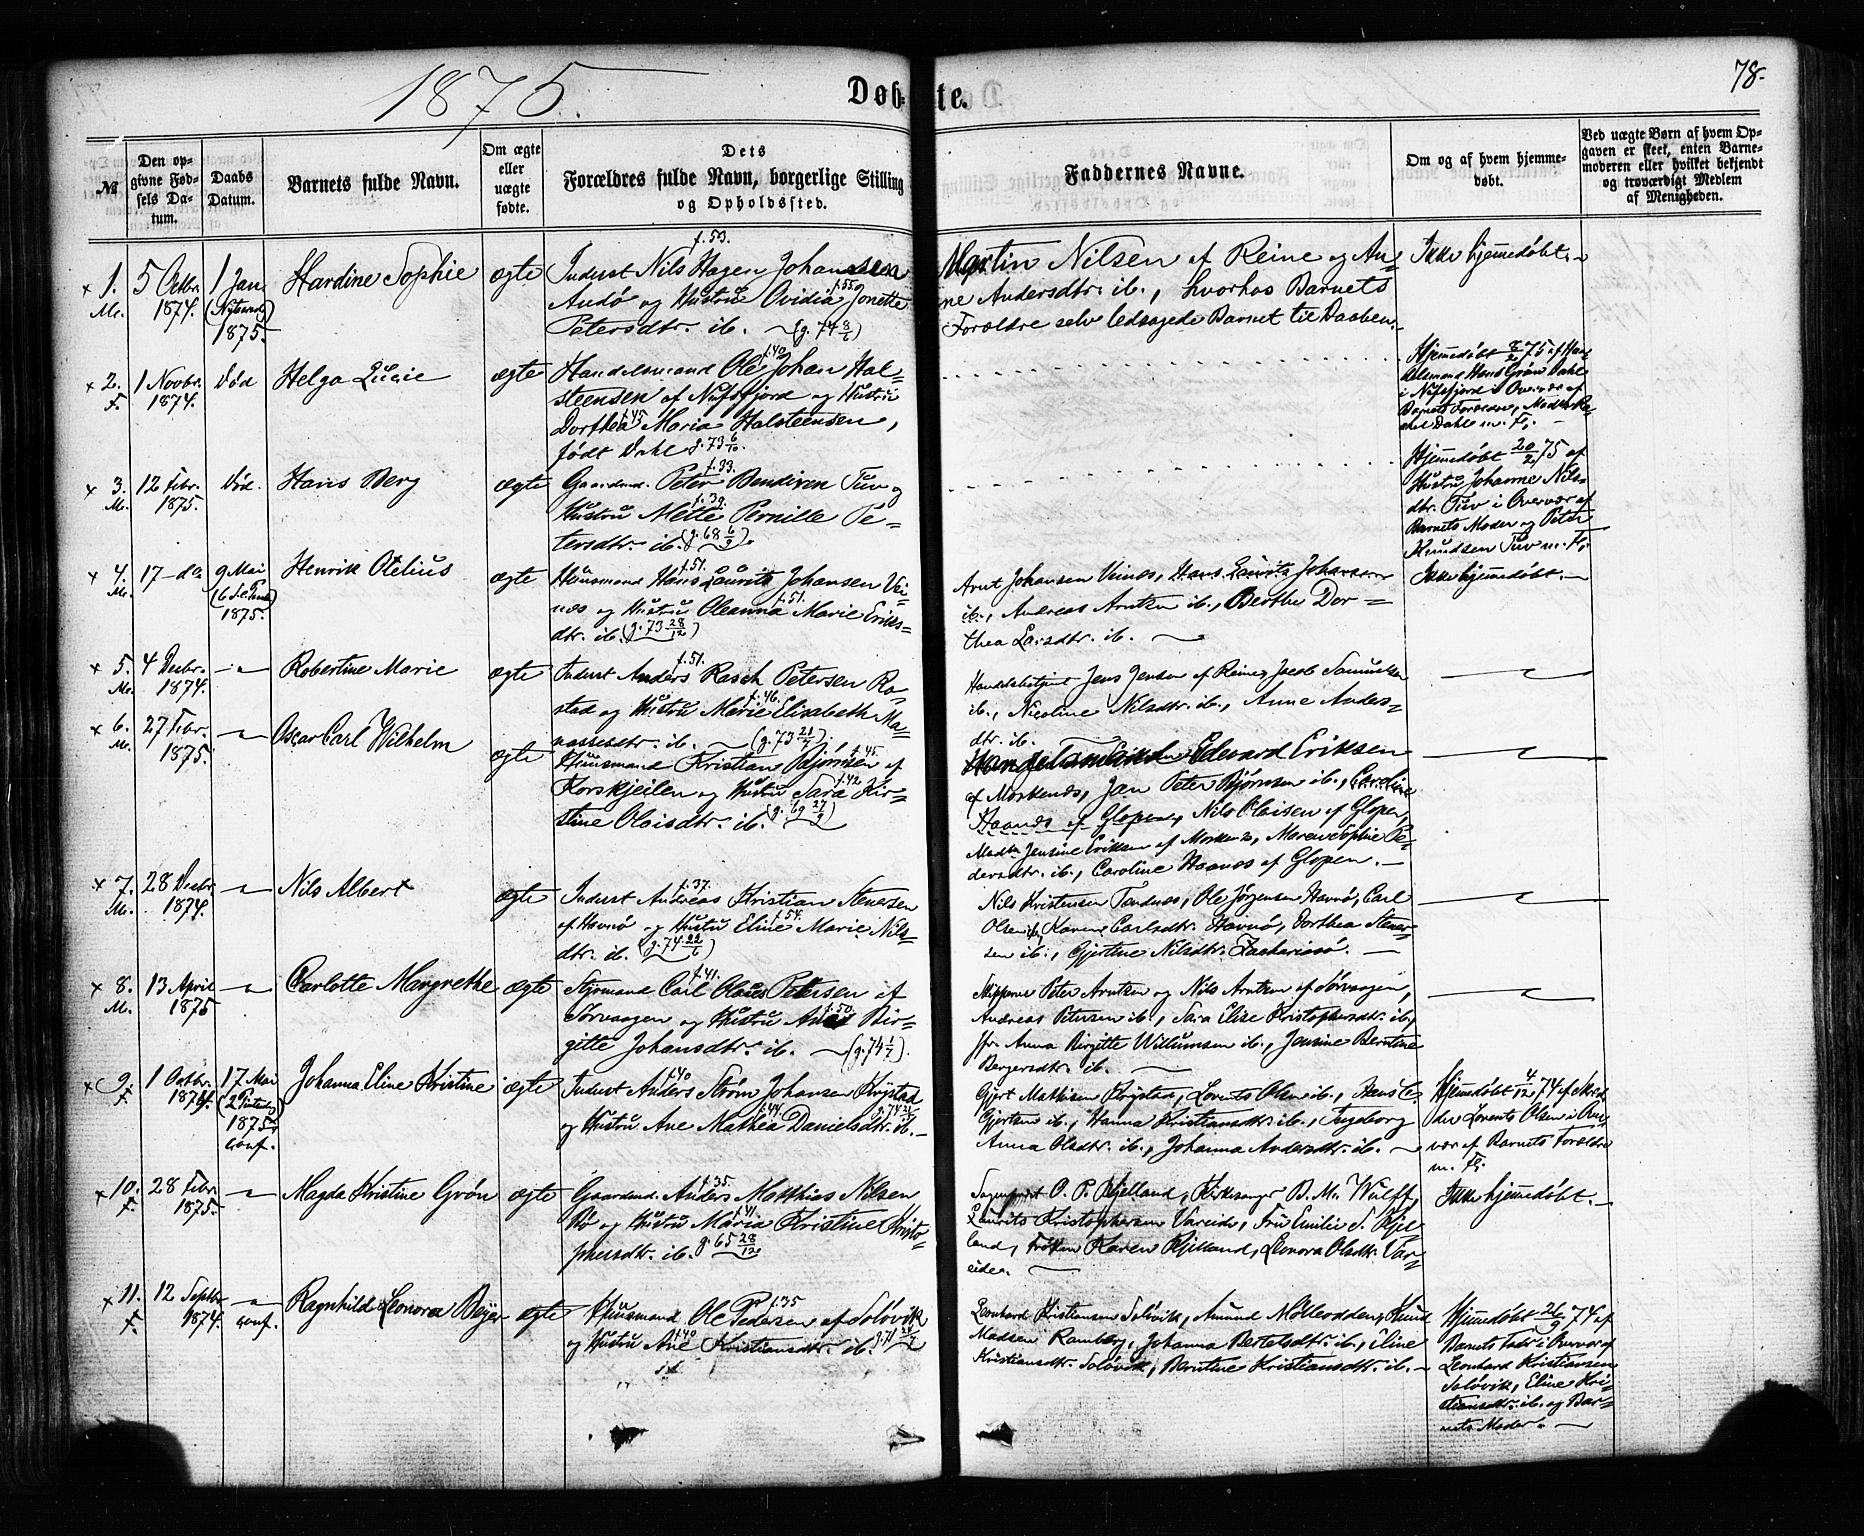 1875.
Døbte.
78.
№
Den opgivne Fødsels Datum.
Daabs Datum.
Barnets fulde Navn.
Om ægte eller uægte fødte.
Dets Forældres fulde Navn, borgerlige Stilling og Opholdssted.
Faddernes Navne.
Om og af hvem hjemmedøbt.
Ved uægte Børn af hvem Opgaven er skeet, enten Barnemoderen eller hvilket bekjendt og troværdigt Medlem af Menigheden.
1. 5 Octbr. 1 Jan. Hardine Sophie ægte Inderst Nils Hagen Johansen
M. 1874. (Nytaarsd) 1875. f. 53.
Andø og Hustru Ovidia Jonette
f. 55
Petersdtr. ib. (g. 74 8/6)
Martin Nilsen af Reine og An-
ne Andersdtr. ib., hvorhos Barnets
Forældre selv ledsagede Barnet til Daaben.
Ikke hjemmedøbt.
2. 1 Novbr. død Helga Lucie ægte Handelsmand Ole Johan Hal-
F. 1874. f. 40
steensen af Nufsfjord og Hustru
Dorthea Maria Halsteensen,
f. 45
født Dahl g. 73 6/10
Hjemmedøbt 8/2 75 af Han-
delsmand Hans Grøn Dahl
i Nufsfjord i Overvær af
Barnets Forældre,
Dahl m. Fl.
3. 12 Febr. død. Hans Berg ægte Gaardmd. Peter Tuv og
M. 1875. f. 33.
Hustru Mette Pernille Pe-
f. 39.
tersdtr. ib. (g. 68 6/9)
Hjemmedøbt 20/2 75 af
Hustru Johanne Nils-
dtr. Tuv i Overvær af
Barnets Moder og Peter
Knudsen Tuv m. Fl.
4. 17 - do 9 Mai Henrik Otelius ægte Huusmand Hans Laurits Johansen Vei-
M. 1875. f. 51.
næs og Hustru Oleanna Marie Eriks-
f. 51.
dtr. ib. (g. 73 28/12)
Arnt Johansen Veinæs, Hans Laurits Johansen
ib., Andreas Arntsen ib., Berthe Dor-
thea Larsdtr. ib.
Ikke hjemmedøbt.
5. 4 Decbr. Robertine Marie ægte Inderst Anders Rasch Petersen Ra-
M. 1874. f. 51.
stad og Hustru Marie Elisabeth Ma-
f. 46.
nassesdtr. ib. (g. 73 21/7)
Handelsbetjent Jens Jensen af Reine, Jacob Samuelsen
ib., Nicoline Nilsdtr. ib., Anne Anders-
dtr. ib.
6. 27 Febr. Oscar Carl Wilhelm ægte Huusmand Kristian Bjørnsen af
M. 1875. f. 45.
Korskjeilen og Hustru Sara Kir-
f. 42
stine Olaisdtr. ib. (g. 69 27/9)
Edevard Eriksen
af Moskenæs, Jan Peter Bjørnsen ib., Caroline
Haanæs af Glopen, Nils Olaisen af Glopen,
Jensine Eriksen af Moskenæs, Maren Sophie Pe-
dersdtr. ib., Caroline Haanæs af Glopen.
7. 28 Decbr. Nils Albert ægte Inderst Andreas Kristian Stensen
M. 1874. f. 37.
af Havnø og Hustru Eline Marie Nils-
f. 54.
dtr. ib. (g. 74 22/6)
Nils Kristensen Tendnæs, Ole Jørgensen Havnø, Carl
Olsen ib., Karen Carlsdtr. Havnø, Dorthea Stener-
sen ib., Gjertine Nilsdtr. Zachariasø.
8. 13 April Charlotte Margrethe ægte Styrmand Carl Olaus Petersen af
M. 1875 f. 41.
Sørvaagen og Hustru Anna Bir-
f. 50.
gitte Johansdtr. ib. (g. 74 1/7).
Skipperne Peter Arntsen og Nils Arntsen af Sørvaagen,
Andreas Petersen ib., Sara Elise Kristophersdtr. ib.,
jfr. Anna Birgitte Willumsen ib., Jensine Berntine
Bergersdtr. ib.
9. 1 Octbr. 17 Mai Johanna Eline Kristine ægte Inderst Anders Strøm Johansen Krystad
F. 1874. (2 Pintsedag) 1875. conf. f. 40
og Hustru Ane Mathea Danielsdtr. ib.
f. 44.
Gjert Mathisen Krystad, Lorents Olsen ib., Hans C.
Gjertsen ib., Hanna Kristiansdtr. ib., Ingeborg
Anna Olsdtr. ib., Johanna Andersdtr. ib.
Hjemmedøbt 4/12 74 af
Lorents Olsen i Over-
vær af Barnets Forældre
m. Fl.
10. 28 Febr. Magda Kristine Grøn ægte Gaardmd. Anders Matthias Nilsen
F. 1875. f. 35.
Bø og Hustru Maria Kristine Kristo-
f. 41.
phersdtr. ib. g. 65 28/12
Sogneprest O. P. Kjelland, Kirkesanger B. M. Wulff,
Laurits Kristophersen Vareide, Fru Emilie S. Kjel-
land, Frøken Karen Kjelland, Leonora Olsdtr. Var-
eide.
Ikke hjemmedøbt.
11. 12 Septbr. Ragnhild Leonora Beyer ægte Huusmand Ole P. Pedersen af Soløvik
F. 1874. conf. f. 35
og Hustru Ane Kristiansdtr. ib.
f. 40
Leonhard Kristiansen Soløvik, Amund Mølleodden, Knud
Madsen Ramberg, Johanna Bertelsdtr. ib., Eline
Kristiansdtr. Soløvik, Berntine Kristiansdtr. ib.
Hjemmedøbt 26/9 74 af
Barnets Fader i Overvær af
Leonhard Kristiansen
Soløvik, Eline Kri-
stiansdtr. ib. og Bar-
nets Moder.